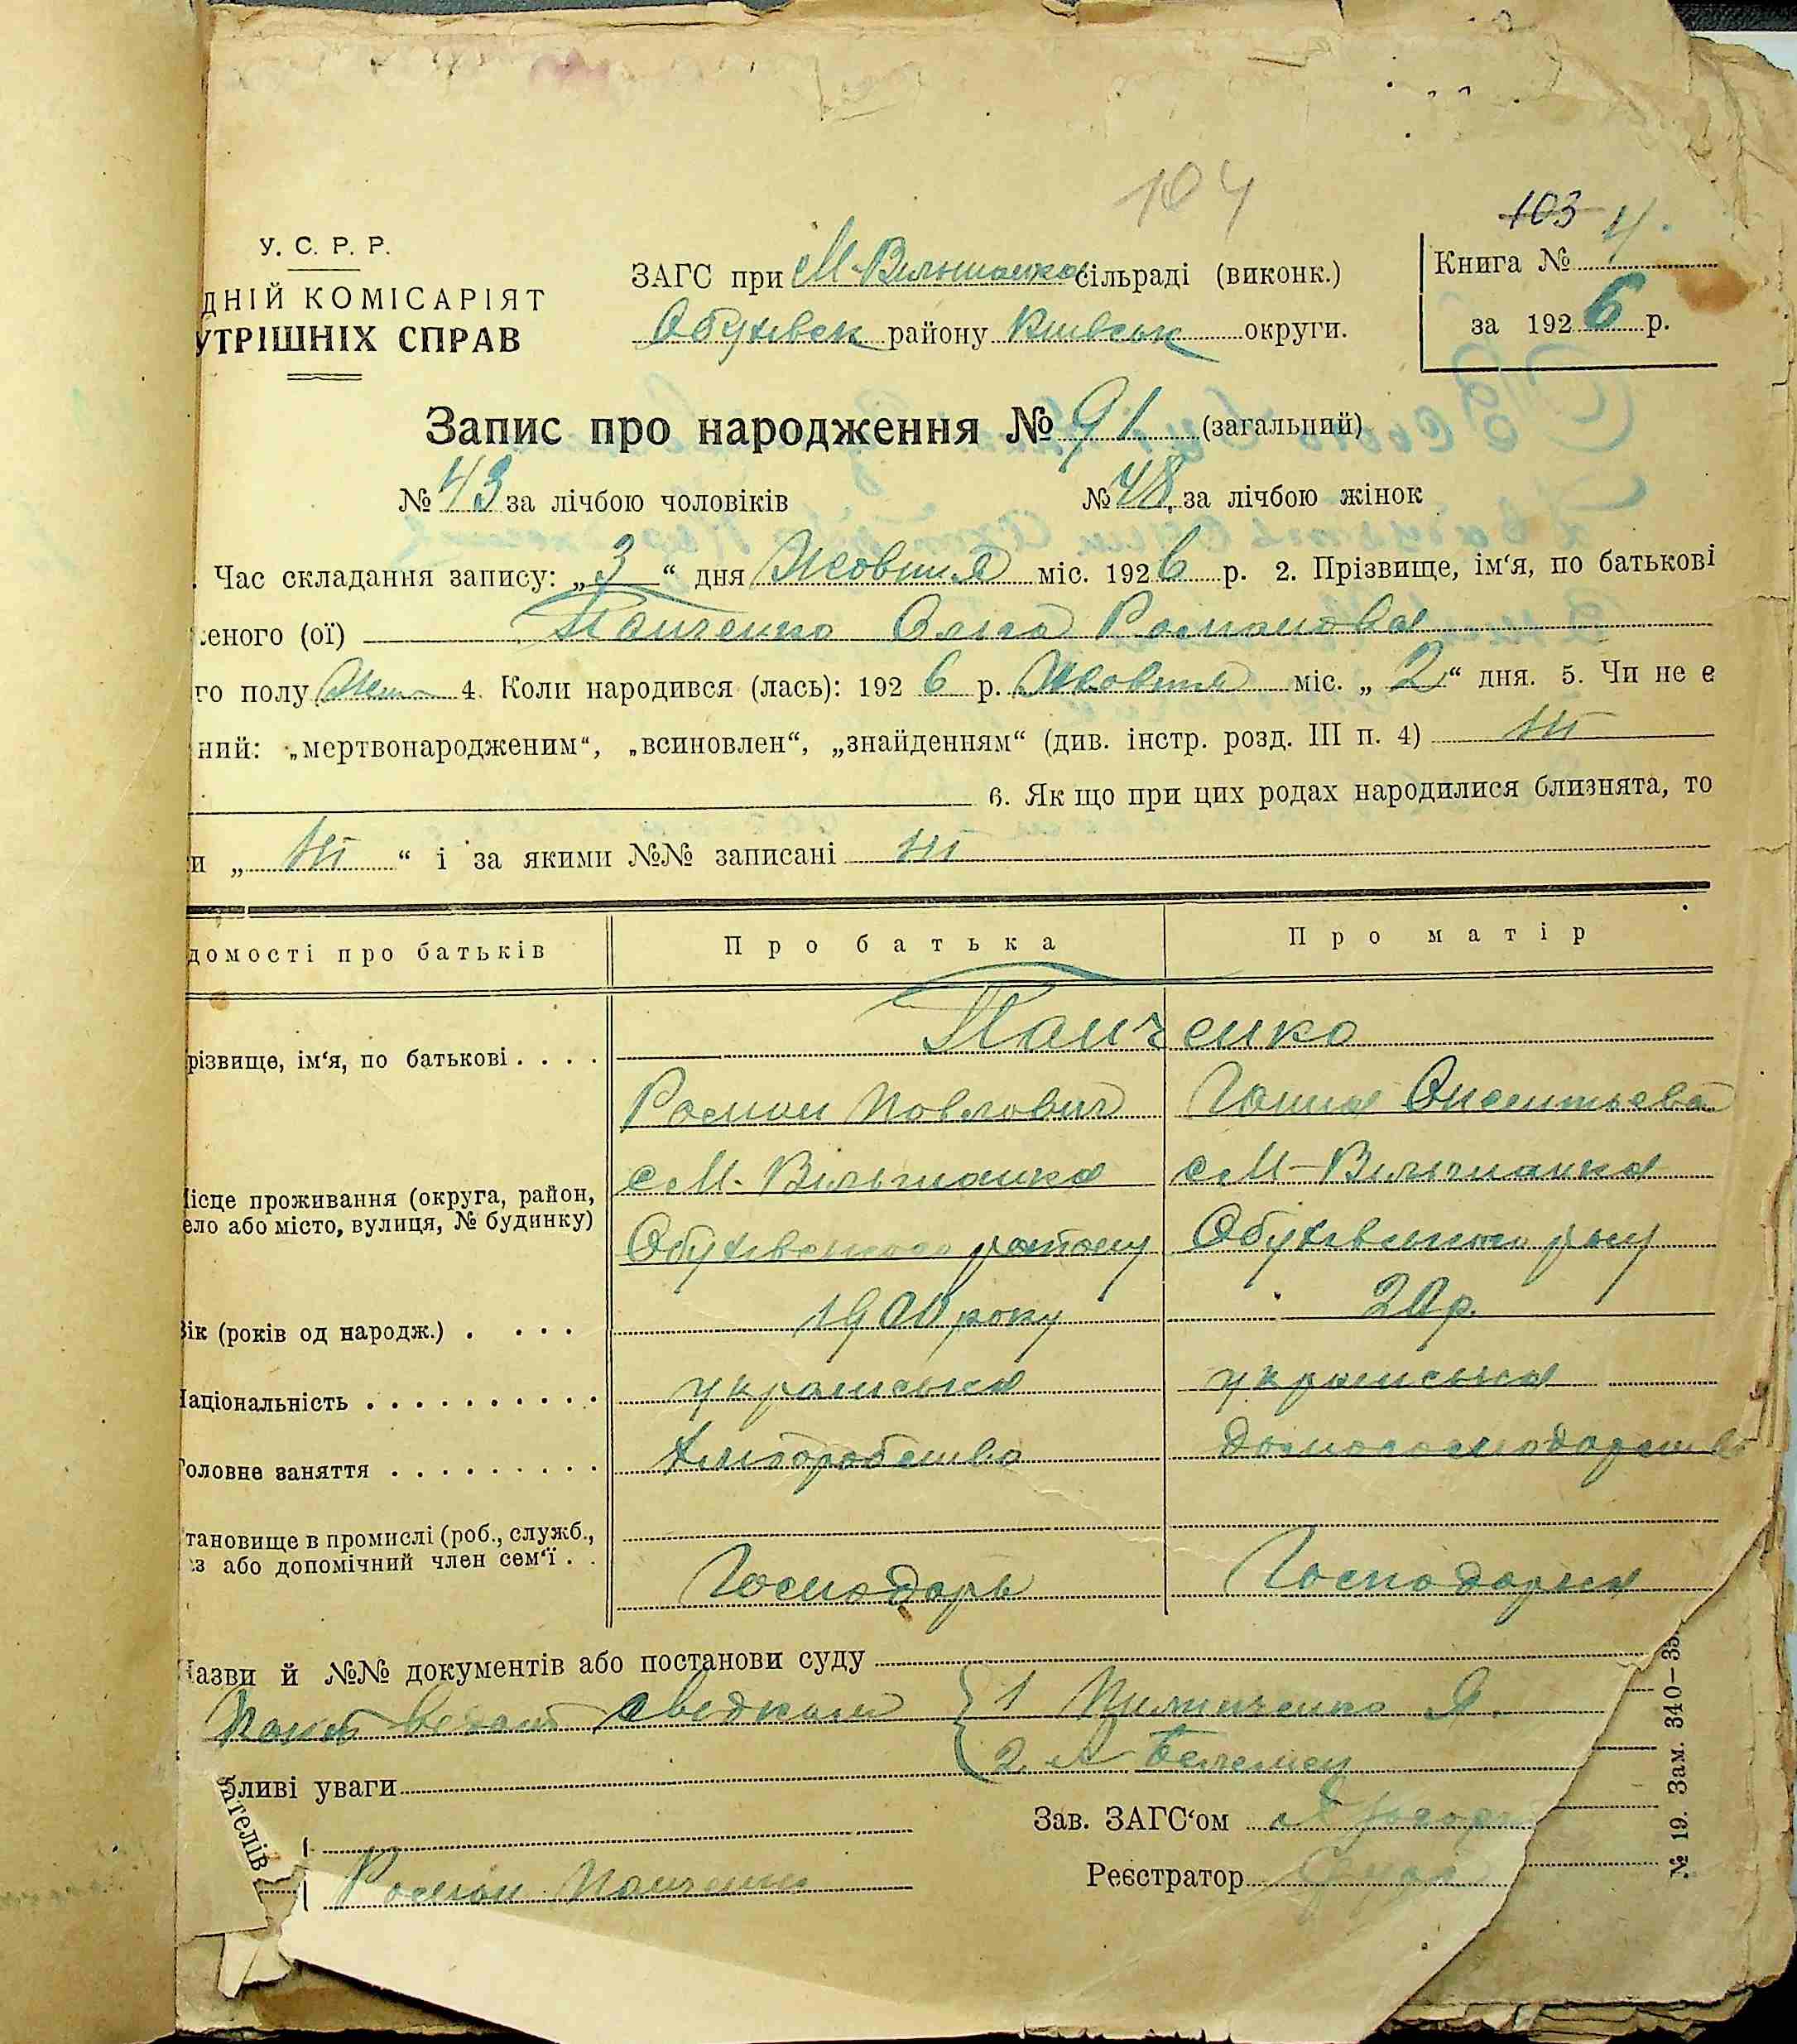 104
103 4.
У. С. Р. Р.
ДНІЙ КОМІСАРІЯТ
УТРІШНІХ СПРАВ
ЗАГС при М-Вільшанко сільраді (виконк.)
Обухівськ району Київськ округи.
Книга №
за 1926 р.
Запис про народження № 91 (загальний)
№ 43 за лічбою чоловіків № 48 за лічбою жінок
. Час складання запису: „3“ дня Жовтня міс. 1926 р. 2. Прізвище, ім‘я, по батькові
еного (ої) Панченко Ольга Романова
го полу Жін 4. Коли народився (лась): 1926 р. Жовтня міс. „2“ дня. 5. Чи не є
ний: „мертвонародженим“, „всиновлен“, „знайденням“ (див. інстр. розд. III п. 4) Ні
6. Як що при цих родах народилися близнята, то
и „Ні“ і за якими №№ записані Ні
домості про батьків Про батька Про матір
різвище, ім‘я, по батькові . . . . Панченко
Роман Павлович Ганна
ісце проживання (округа, район, с М-Вільшанка с М-Вільшанка
ело або місто, вулиця, № будинку) Обухівського району Обухівського р-ну
ік (років од народж.) . . . . 1900 року 20 р.
аціональність . . . . . . . . . . українська українська
оловне заняття . . . . . . . . . Хліборобство домогосподарство
тановище в промислі (роб., служб.,
з або допомічний член сем‘ї . . Господарь Господарка
азви й №№ документів або постанови суду
сведками { 1 Пилипченко Я.
2
бливі уваги
Зав. ЗАГС‘ом
ителів
Реєстратор
Роман Панченко
№ 19. Зам. 340—35